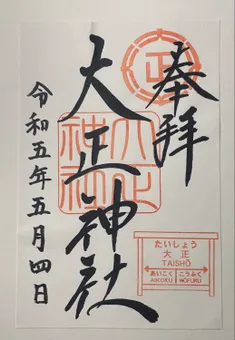 奉拝
大正神社
大正
神社
令和五年五月四日
たいしょう
大正
TAISHŌ
あいこく こうふく